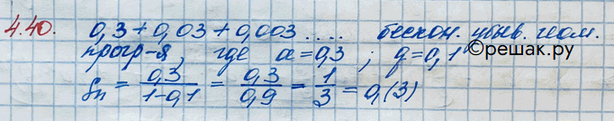 4.40. 0,3 + 0,03 + 0,003 .... бескон. убыв. геом.
прогр-я, где a = 0,3 ; q = 0,1
©решак.ру
Sn = 0,3/1-0,1 = 0,3/0,9 = 1/3 = 0,(3)